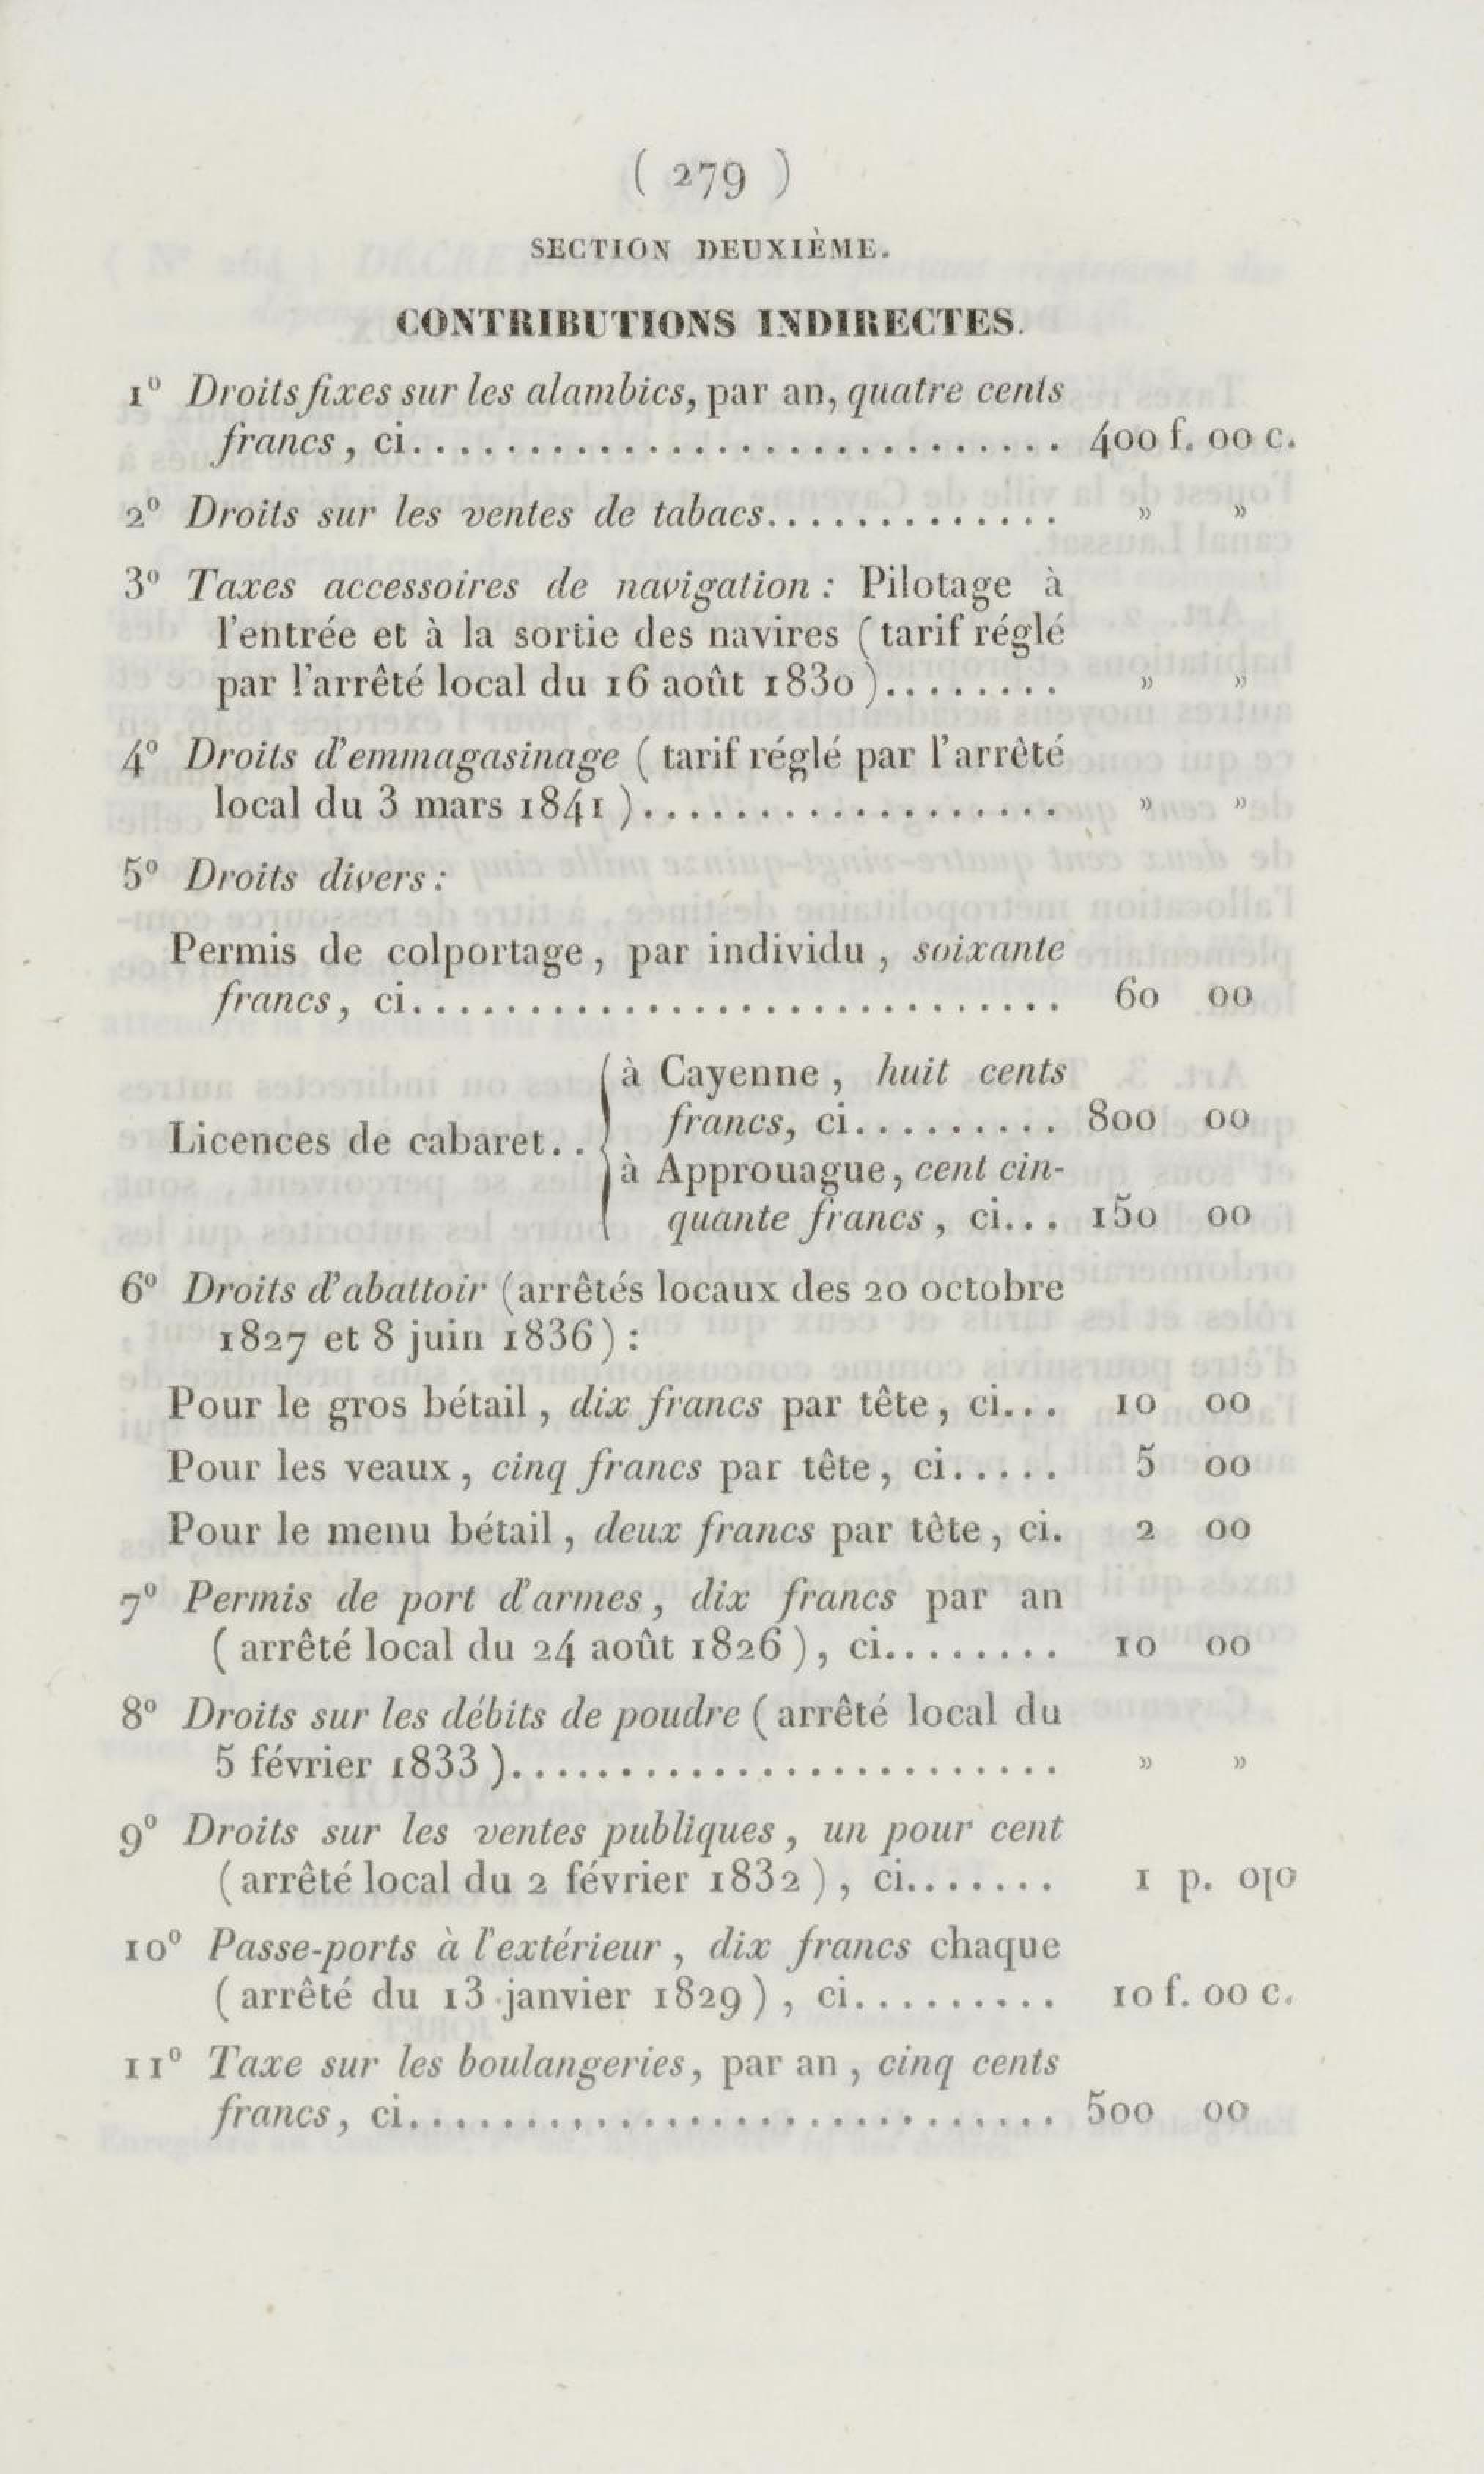 ( 279 )
SECTION DEUXIÈME.
CONTRIBUTIONS INDIRECTES.
1° Droits fixes sur les alambics, par an, quatre cents
francs, ci............................ 400 f. 00 c.
2° Droits sur les ventes de tabacs............. » »
3° Taxes accessoires de navigation : Pilotage à
l'entrée et à la sortie des navires ( tarif réglé
par l'arrêté local du 16 août 1830 )........ » »
4° Droits d'emmagasinage ( tarif réglé par l'arrêté
local du 3 mars 1841 ).................. » »
5° Droits divers :
Permis de colportage, par individu, soixante
francs, ci............................ 60 00
à Cayenne, huit cents
francs, ci......... 800 00
Licences de cabaret..
à Approuague, cent cin-
quante francs, ci... 150 00
6° Droits d'abattoir (arrêtés locaux des 20 octobre
1827 et 8 juin 1836) :
Pour le gros bétail, dix francs par tête, ci... 10 00
Pour les veaux, cinq francs par tête, ci..... 5 00
Pour le menu bétail, deux francs par tête, ci. 2 00
7° Permis de port d'armes, dix francs par an
( arrêté local du 24 août 1826 ), ci........ 10 00
8° Droits sur les débits de poudre ( arrêté local du
5 février 1833 )........................ » »
9° Droits sur les ventes publiques, un pour cent
( arrêté local du 2 février 1832 ), ci....... 1 p. 0/0
10° Passe-ports à l'extérieur, dix francs chaque
( arrêté du 13 janvier 1829 ), ci......... 10 f. 00 c.
11° Taxe sur les boulangeries, par an, cinq cents
francs, ci............................ 500 00